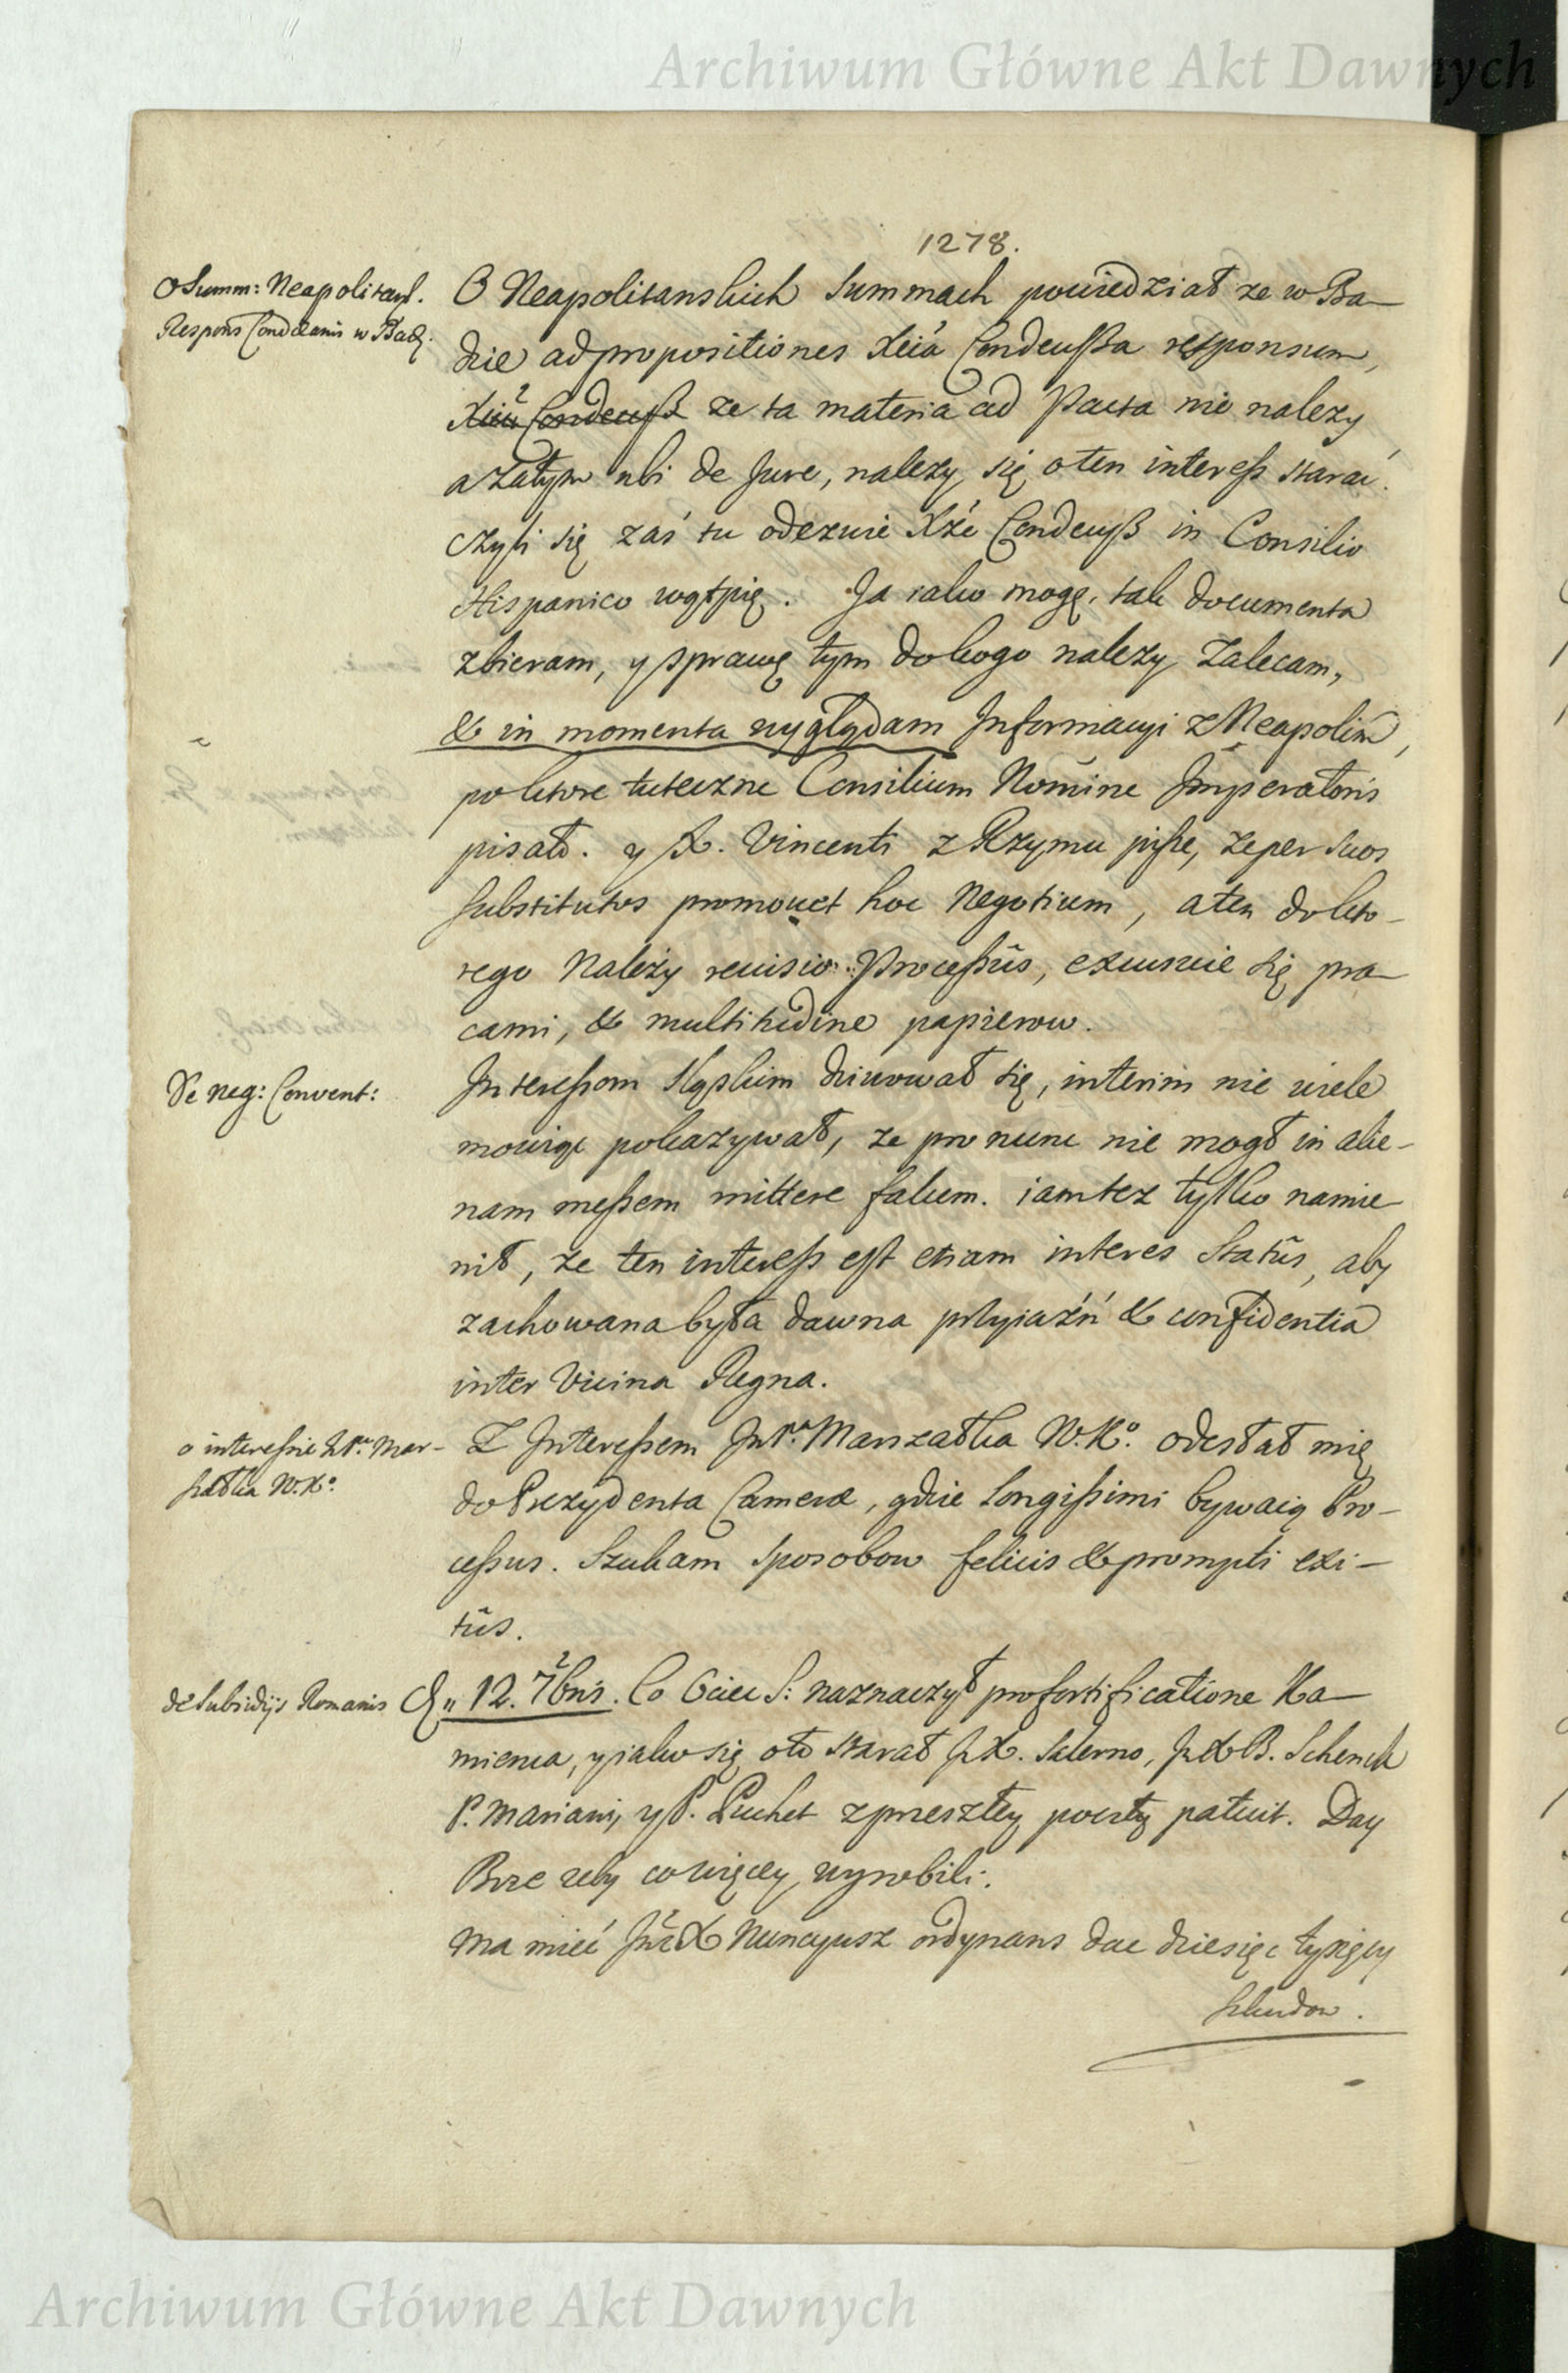 Archiwum Główne Akt Dawnych
1278.
o Summ: Neapolitansk.
Respons Condeanis w Bad.
O Neapolitanskich Summach powiedział ze w Ba-
dzie ad propositiones Xcia Condeußa responsum,
Xciu Condeuß ze ta materia ad Pacta nie nalezy,
a Zatym ubi de Jure, nalezy się o ten interess starać.
czyli się zaś tu odezwie Xże Condeuß in Consilio
Hispanico wątpię. Ja iako mogę, tak documenta
zbieram, y sprawę tym do kogo nalezy Zalecam,
& in momenta wyglądam Informacyi z Neapolim,
po ktore tuteczne Consilium Nomine Imperatoris
pisało. y X. Vincenti z Rzymu pisze, ze per suos
substitutos promovet hoc Negotium, a ten do kto-
rego Należy revisio Processûs, excusuie się pra-
cami, & multitudine papierow.
De neg: Convent:
Interessom Sląskim dziwował się, interim nie wiele
mowiąc pokazywał, ze pro nunc nie mogł in alie-
nam messem mittere falcem. iam tez tylko namie
nił, ze ten interess est etiam interes Statûs, aby
zachowana była dawna przyiaźń & confidentia
inter Vicina Regna.
o interessie JP. Mar-
szałka W. Ko.
Z Interessem JmPa. Marszałka W. Ko. odesłał mię
do Prezydenta Cameræ, gdzie Longissimi bywaią Pro-
cessus. Szukam sposobow felicis & prompti exi-
tûs.
de Subsidijs Romanis
12. 7bris. Co Ociec S: naznaczył pro fortificatione Ka-
mienca, y iako się o to starał JX. Salerno, JX B. Schenck
P. Mariani, y P. Puchet z przeszłey poczty patuit. Day
Boze zeby co więcey wyrobili.
Ma mieć JmX Nuncyusz ordynans dac dziesięc tysięcy
szkudow.
Archiwum Główne Akt Dawnych